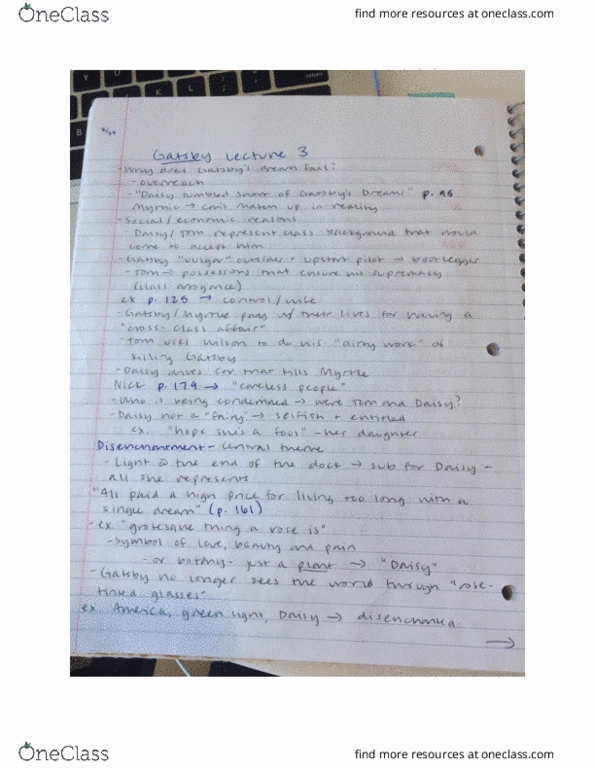 OneClass
find more resources at oneclass.com
Gatsby Lecture 3
- Why does Gatsby's dream fail?
- overreach
- "Daisy tumbled short of Gatsby's Dreams" p. 95
→ can't match up in reality
- Social/economic reasons
- Daisy/Tom represent class background that never
come to accept him
- Gatsby "vulgar" outsider + upstart → bootlegger
- Tom → possessions that ensure his supremacy
(class arrogance)
ex p. 125 → control/wife
- Gatsby/Myrtle pay w/ their lives for having a
"cross-class affair"
- Tom uses Wilson to do his "dirty work" of
killing Gatsby
- Daisy drives car that kills Myrtle
Nick p. 179 → "careless people"
- Who is being condemned → were Tom and Daisy?
- Daisy not a → selfish + entitled
ex. "hope she's a fool" - her daughter
Disenchantment - central theme
- Light @ the end of the dock → sub for Daisy -
all she represents
"All paid a high price for living too long with a
single dream" (p. 161)
- ex "grotesque thing a rose is"
- symbol of love, beauty and pain
- or botany - just a plant → "Daisy"
- Gatsby no longer sees the world through "rose-
tinted glasses"
ex. America, green light, Daisy →
→
OneClass
find more resources at oneclass.com